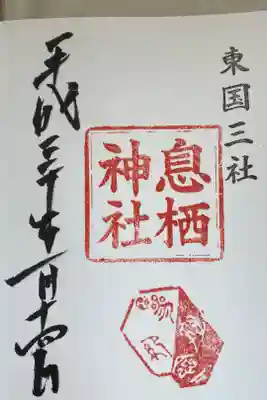 東国三社
息栖
神社
平成三十年一月十四日